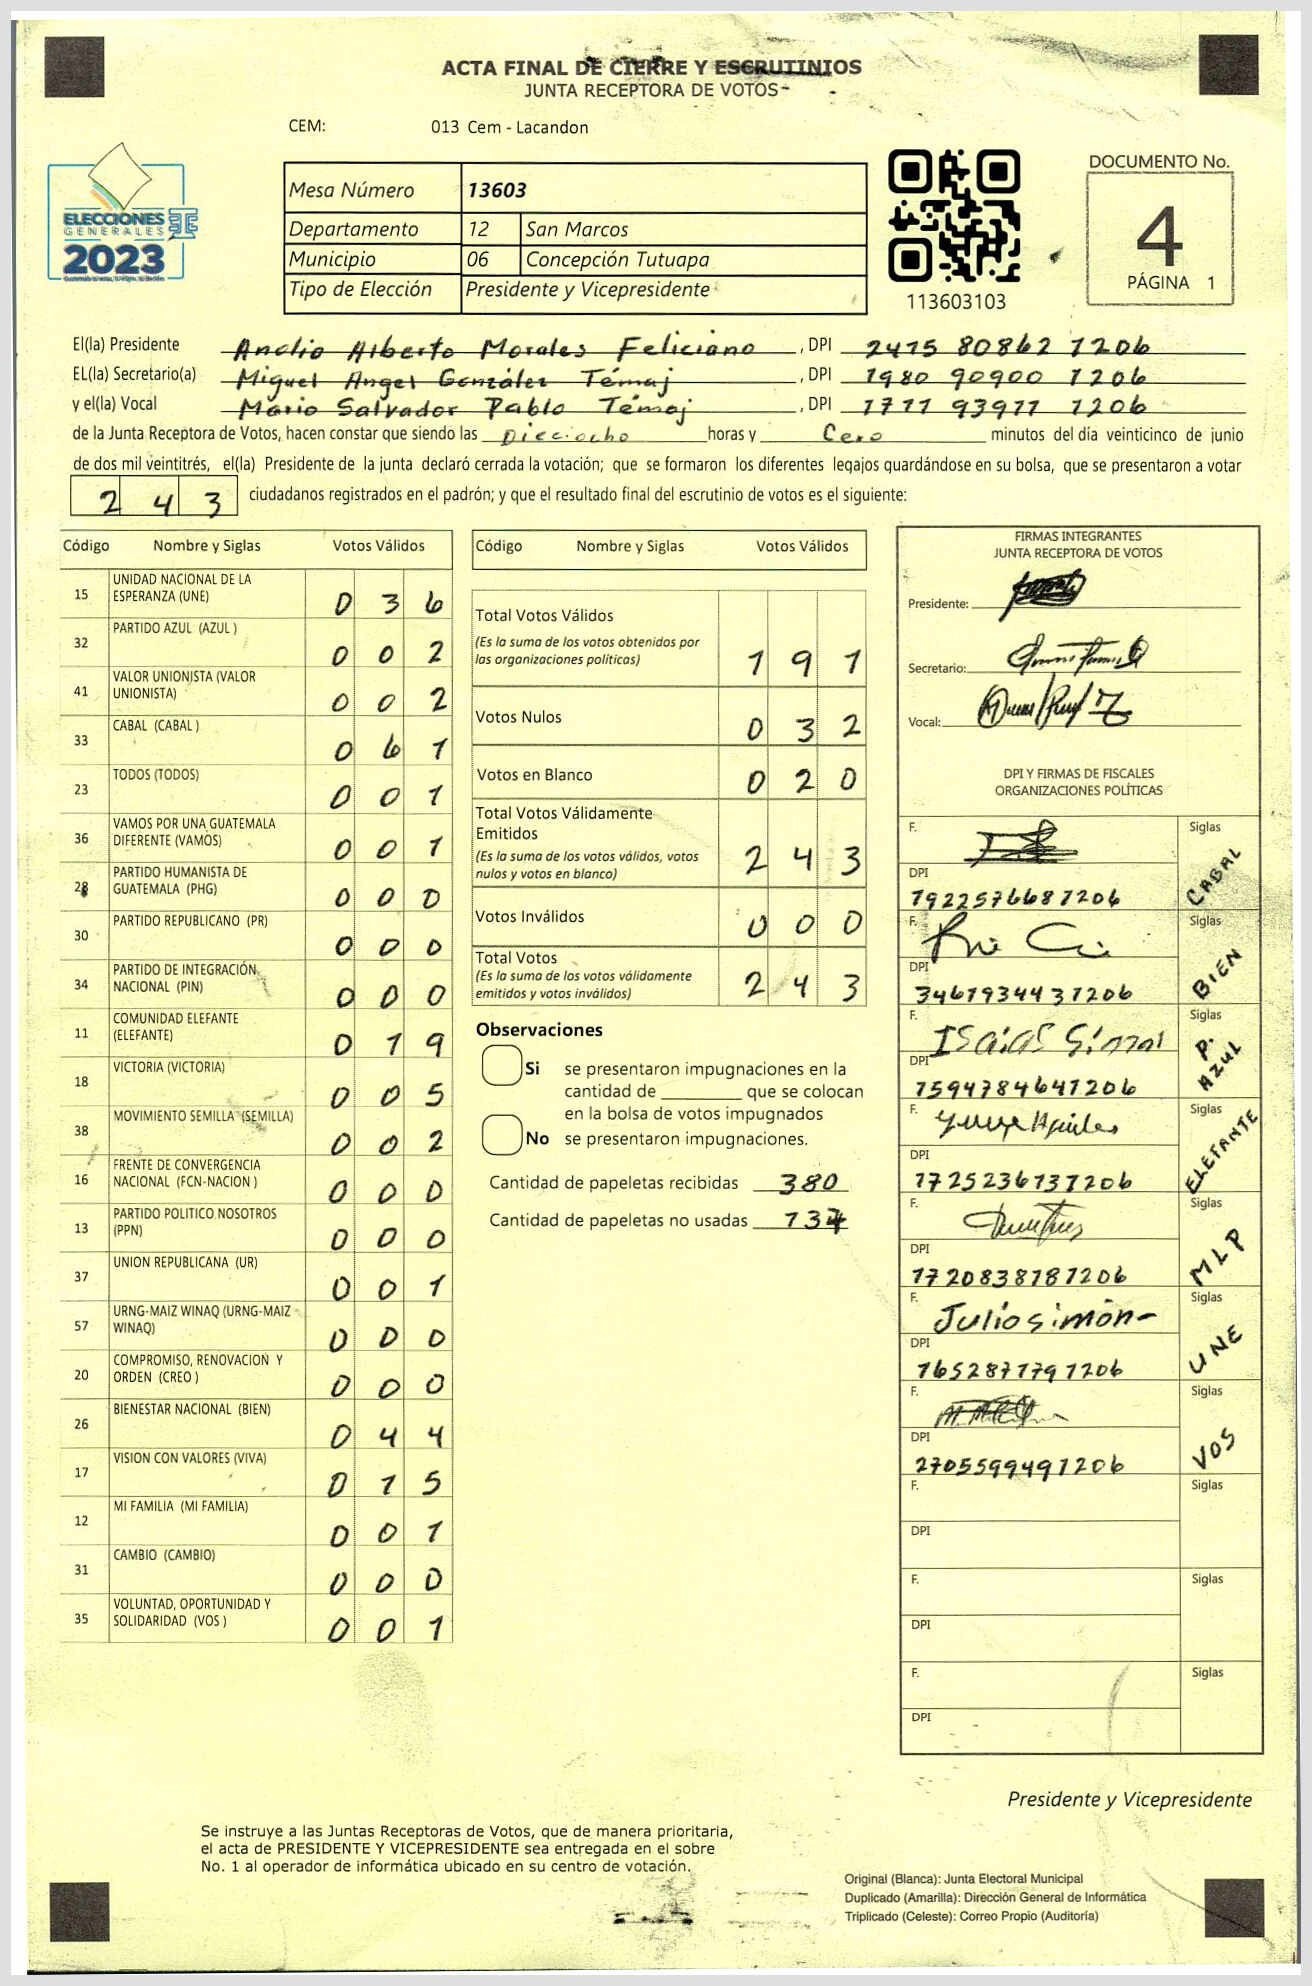 ACTA FINAL DE CIERRE Y ESCRUTINIOS
JUNTA RECEPTORA DE VOTOS
CEM: 013 Cem - Lacandon
ELECCIONES
GENERALES
2023
Mesa Número 13603
Departamento 12 San Marcos
Municipio 06 Concepción Tutuapa
Tipo de Elección Presidente y Vicepresidente
113603103
DOCUMENTO No.
4
PÁGINA 1
El(la) Presidente Anclio Alberto Morales Feliciano, DPI 2475 80862 1206
EL(la) Secretario(a) Miguel Angel González Témaj, DPI 1980 90900 1206
y el(la) Vocal Mario Salvador Pablo Témaj, DPI 1711 93911 1206
de la Junta Receptora de Votos, hacen constar que siendo las Dieciocho horas y Cero minutos del día veinticinco de junio
de dos mil veintitrés, el(la) Presidente de la junta declaró cerrada la votación; que se formaron los diferentes legajos guardándose en su bolsa, que se presentaron a votar
243 ciudadanos registrados en el padrón; y que el resultado final del escrutinio de votos es el siguiente:
Código Nombre y Siglas Votos Válidos
15 UNIDAD NACIONAL DE LA ESPERANZA (UNE) 036
32 PARTIDO AZUL (AZUL ) 002
41 VALOR UNIONISTA (VALOR UNIONISTA) 002
33 CABAL (CABAL ) 061
23 TODOS (TODOS) 001
36 VAMOS POR UNA GUATEMALA DIFERENTE (VAMOS) 001
28 PARTIDO HUMANISTA DE GUATEMALA (PHG) 000
30 PARTIDO REPUBLICANO (PR) 000
34 PARTIDO DE INTEGRACIÓN NACIONAL (PIN) 000
11 COMUNIDAD ELEFANTE (ELEFANTE) 019
18 VICTORIA (VICTORIA) 005
38 MOVIMIENTO SEMILLA (SEMILLA) 002
16 FRENTE DE CONVERGENCIA NACIONAL (FCN-NACION ) 000
13 PARTIDO POLITICO NOSOTROS (PPN) 000
37 UNION REPUBLICANA (UR) 001
57 URNG-MAIZ WINAQ (URNG-MAIZ WINAQ) 000
20 COMPROMISO, RENOVACION Y ORDEN (CREO ) 000
26 BIENESTAR NACIONAL (BIEN) 044
17 VISION CON VALORES (VIVA) 015
12 MI FAMILIA (MI FAMILIA) 001
31 CAMBIO (CAMBIO) 000
35 VOLUNTAD, OPORTUNIDAD Y SOLIDARIDAD (VOS ) 001
Código Nombre y Siglas Votos Válidos
Total Votos Válidos
(Es la suma de los votos obtenidos por
las organizaciones políticas) 191
Votos Nulos 032
Votos en Blanco 020
Total Votos Válidamente
Emitidos
(Es la suma de los votos válidos, votos
nulos y votos en blanco) 243
Votos Inválidos 000
Total Votos
(Es la suma de los votos válidamente
emitidos y votos inválidos) 243
Observaciones
Si se presentaron impugnaciones en la
cantidad de ________ que se colocan
en la bolsa de votos impugnados
No se presentaron impugnaciones.
Cantidad de papeletas recibidas 380
Cantidad de papeletas no usadas 137
FIRMAS INTEGRANTES
JUNTA RECEPTORA DE VOTOS
Presidente:
Secretario:
Vocal:
DPI Y FIRMAS DE FISCALES
ORGANIZACIONES POLÍTICAS
F. Siglas CABAL
DPI
1922576681206
F. Siglas BIEN
DPI
3461934431206
F. Isaias Simon Siglas P. AZUL
DPI
1594784641206
F. Siglas ELEFANTE
DPI
1725236131206
F. Siglas MLP
DPI
1720838181206
F. Julio simón Siglas UNE
DPI
1652871791206
F. Siglas VOS
DPI
2705599491206
F. Siglas
DPI
F. Siglas
DPI
F. Siglas
DPI
Presidente y Vicepresidente
Se instruye a las Juntas Receptoras de Votos, que de manera prioritaria,
el acta de PRESIDENTE Y VICEPRESIDENTE sea entregada en el sobre
No. 1 al operador de informática ubicado en su centro de votación.
Original (Blanca): Junta Electoral Municipal
Duplicado (Amarilla): Dirección General de Informática
Triplicado (Celeste): Correo Propio (Auditoría)